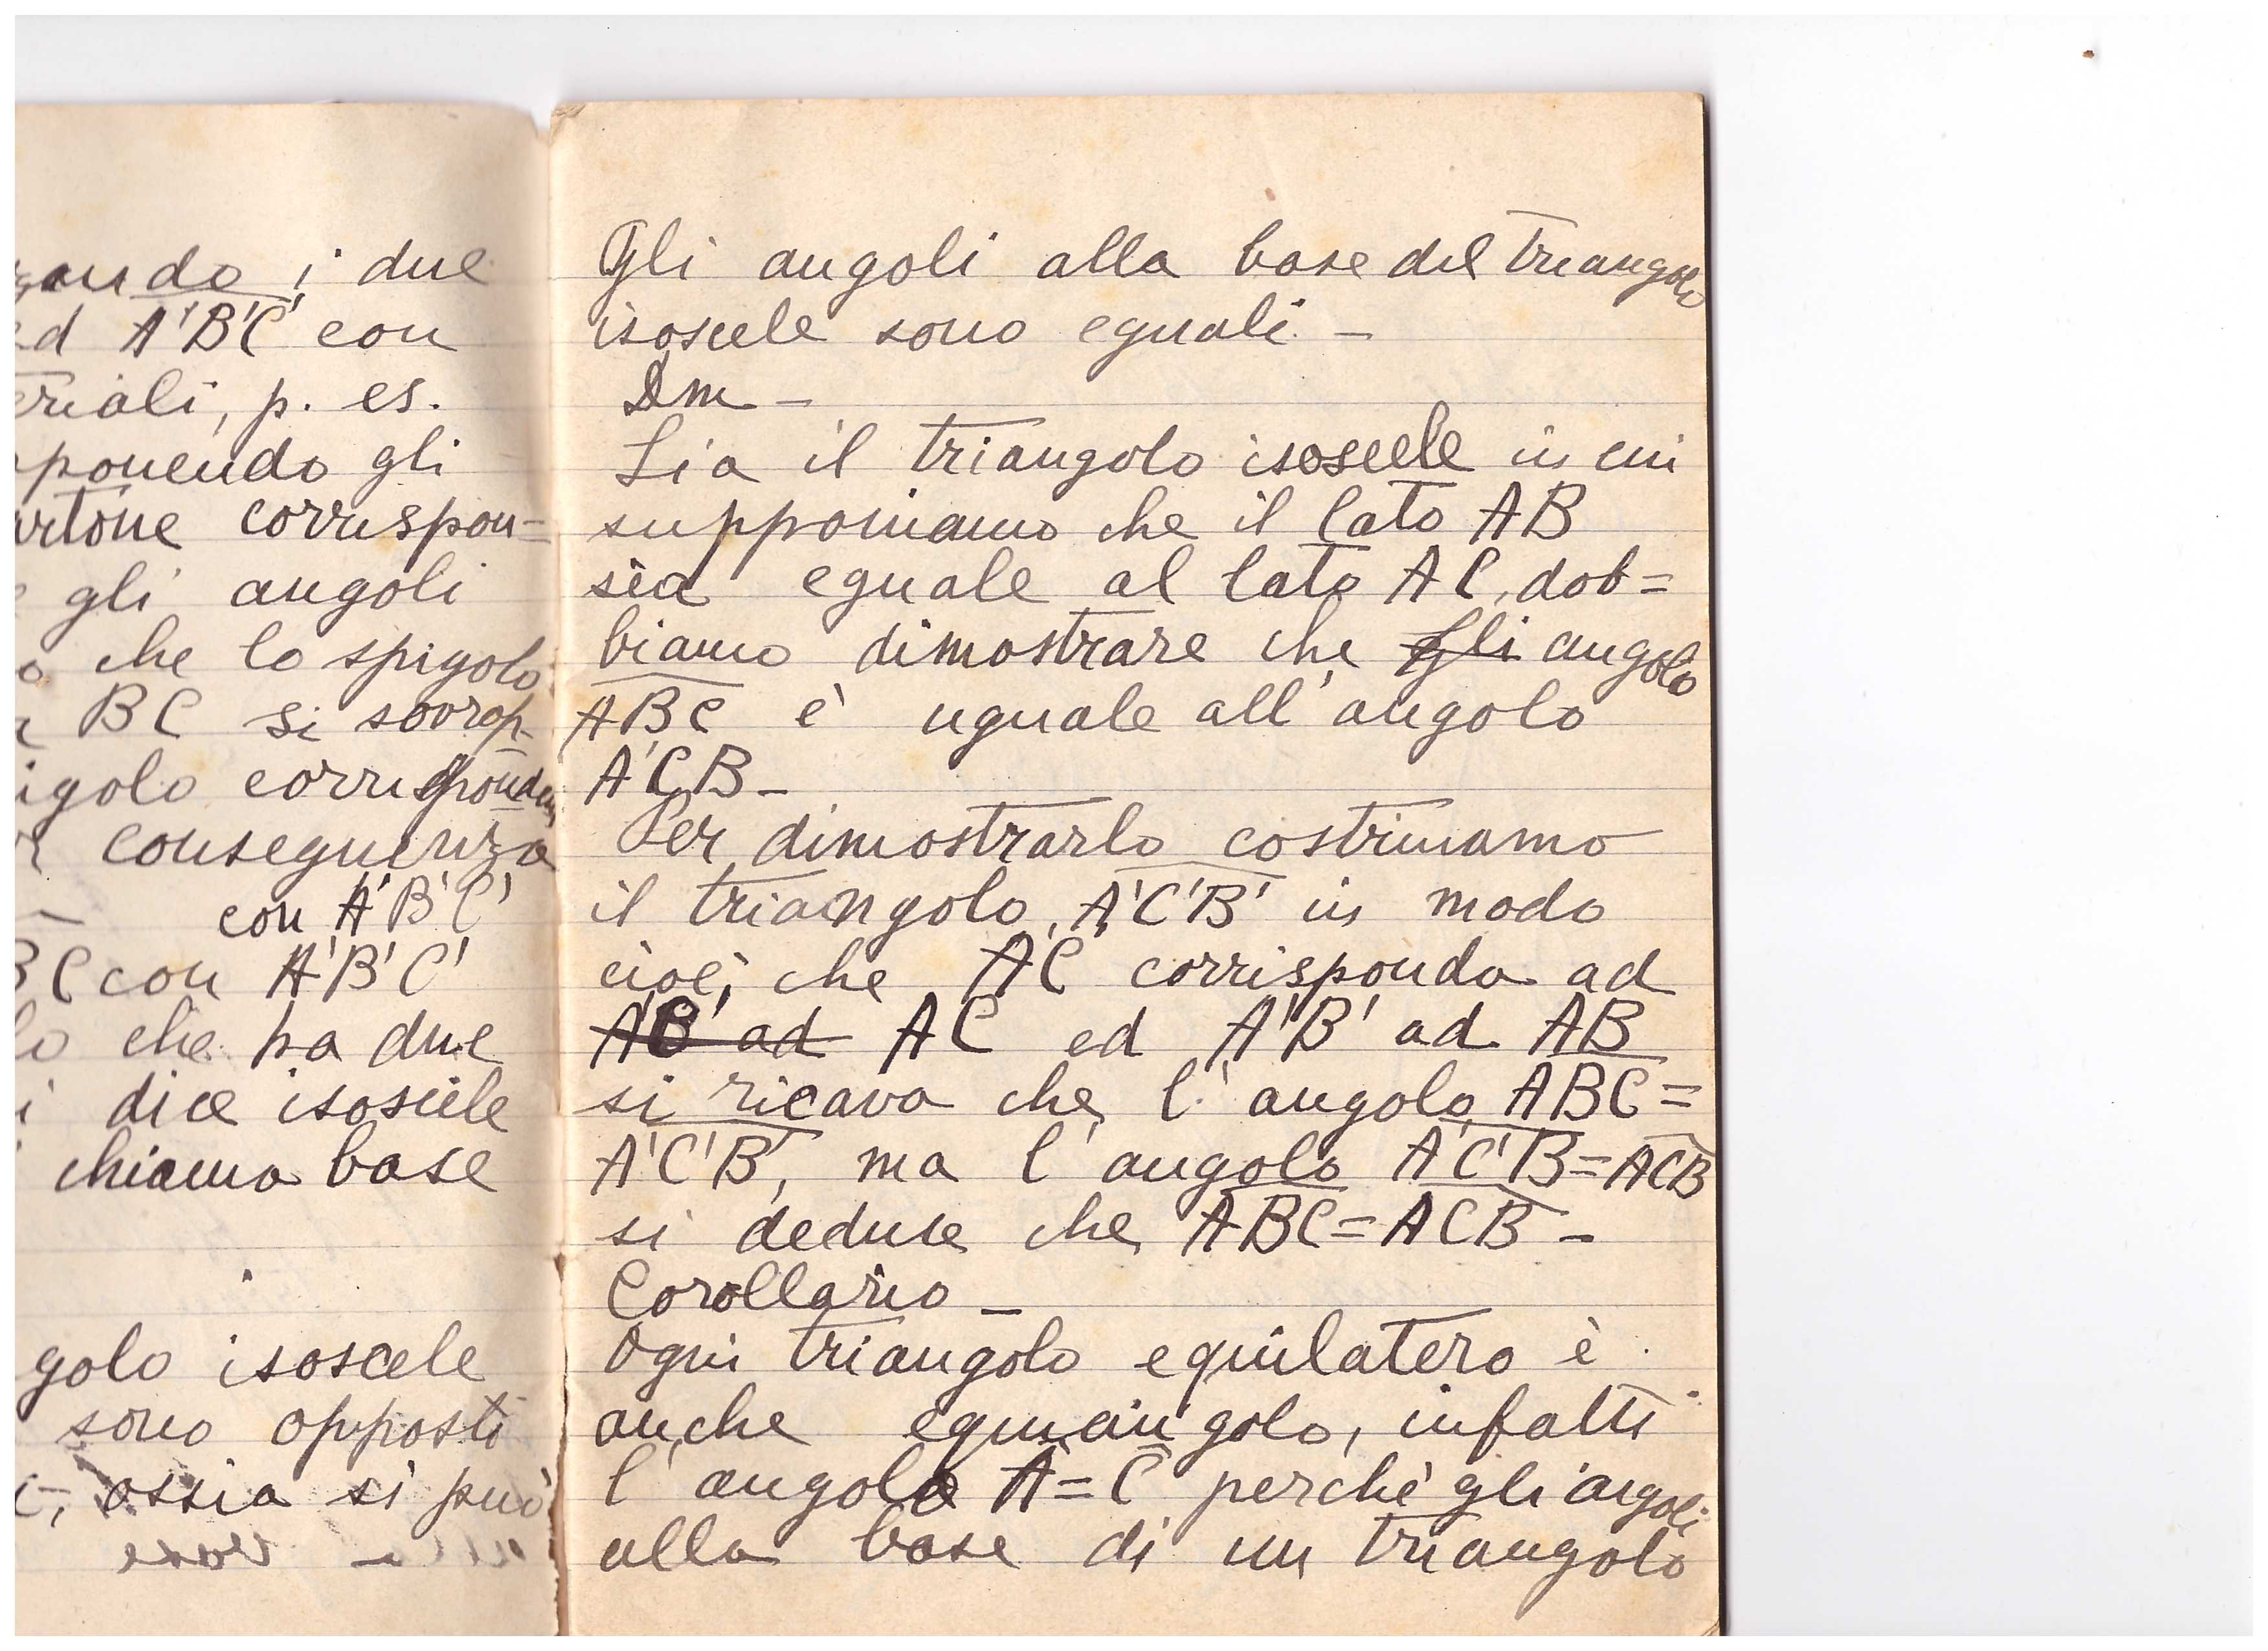 ando i due
ed A'B'C' con
eriali, p. es.
ponendo gli
artone corrispon=
gli angoli
o che lo spigolo
BC si sovrap.
igolo corrisponden
conseguenza
con A'B'C'
BC con A'B'C'
lo che ha due
i dice isoscele
chiama base
golo isoscele
sono opposti
ossia si può
Gli angoli alla base del triangolo
isoscele sono eguali -
Dm -
Sia il triangolo isoscele in cui
supponiamo che il lato AB
sia eguale al lato AC, dob=
biamo dimostrare che gli angolo
ABC è uguale all'angolo
A'CB -
Per dimostrarlo costruiamo
il triangolo A'C'B' in modo
cioè, che A'C' corrisponda ad
A'B' ad AC ed A'B' ad AB
si ricava che l'angolo ABC =
A'C'B', ma l'angolo A'C'B = ACB
si deduce che ABC = ACB -
Corollario -
Ogni triangolo equilatero è
anche equiangolo, infatti
l'angolo A = C perchè gli angoli
alla base di un triangolo